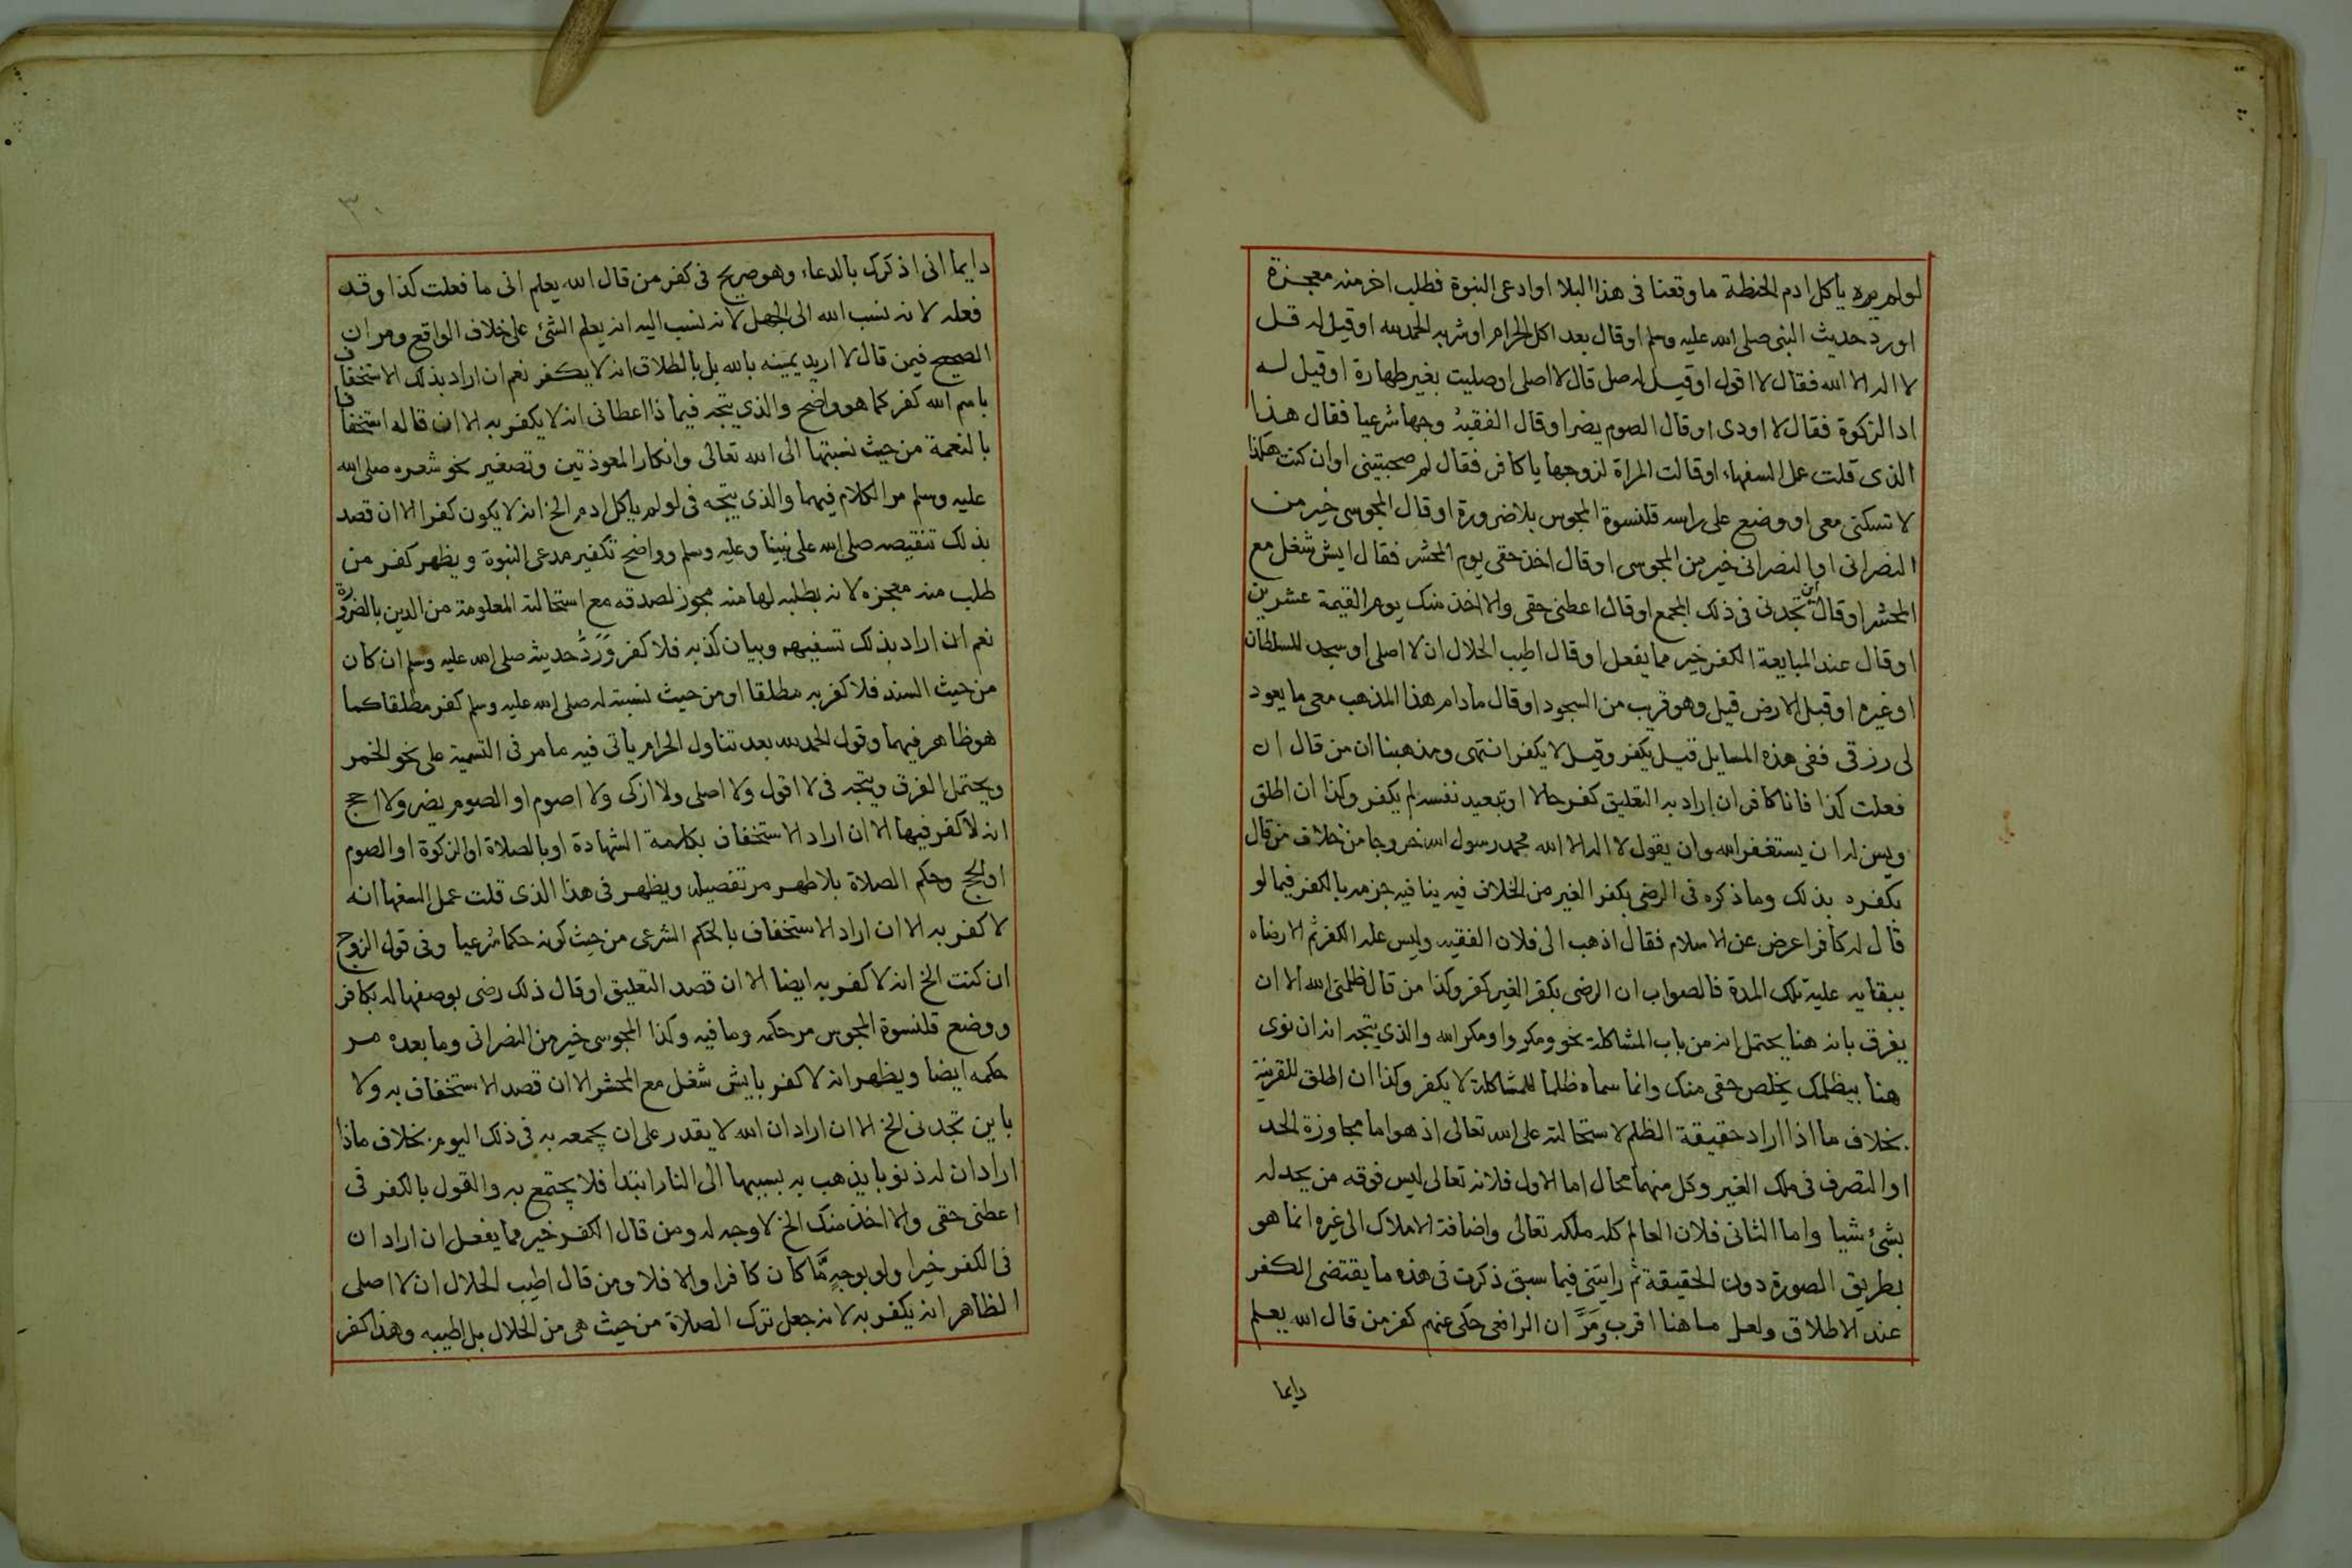 لولم يره ياكل ادم الحنطة ما وقعنا فى هذا البلا اوادعى النبوة فطلب اخر منه معجزة
اورد حديث النبى صلى الله عليه وسلم اوقال بعد اكل الحرام اوشربه الحمد لله اوقيل له قل
لا اله الا الله فقال لا اقول اوقيل له صل قال لا اصلى اوصليت بغير طهارة اوقيل له
اد الزكوة فقال لا اودى اوقال الصوم يضر اوقال الفقيه وجها شرعيا فقال هذا
الذى قلت عمل السفهاء اوقالت المراة لزوجها يا كافر فقال لم صحبتينى اوان كنت هكذا
لا تسكنى معى اووضع على راسه قلنسوة المجوس بلا ضرورة اوقال المجوسى خير من
النصرانى اوالنصرانى خير من المجوسى اوقال اخذ حقى يوم المحشر فقال ايش شغل مع
المحشر اوقال اين تجدنى فى ذلك المجمع اوقال اعطنى حقى والا اخذ منك يوم القيمة عشرين
اوقال عند المبايعة الكفر خير مما يفعل اوقال اطيب الحلال ان لا اصلى اوسجد للسلطان
اوغيره اوقبل الارض قيل وهو قرب من السجود اوقال مادام هذا المذهب معى ما يعود
لى رزقى ففى هذه المسايل قيل يكفر وقيل لا يكفر انتهى ومذهبنا ان من قال ان
فعلت كذا فانا كافر ان اراد به التعليق كفر حالا اوتبعيد نفسه لم يكفر وكذا ان اطلق
ويسن له ان يستغفر الله وان يقول لا اله الا الله محمد رسول الله خروجا من خلاف من قال
بكفره بذلك وما ذكره فى الرضى بكفر الغير من الخلاف فيه ينافيه جزمه بالكفر فيما لو
قال له كافر اعرض عن الاسلام فقال اذهب الى فلان الفقيه وليس علة الكفر ثم الا رضاه
ببقايه عليه تلك المدة فالصواب ان الرضى بكفر الغير كفر وكذا من قال ظلمنى الله الا ان
يفرق بانه هنا يحتمل انه من باب المشاكلة نحو ومكروا ومكر الله والذى يتجه انه ان نوى
هنا بيظلمك يخلص حقى منك وانما سماه ظلما للمشاكلة لا يكفر وكذا ان اطلق للقرينة
بخلاف ما اذا اراد حقيقة الظلم لاستحالته على الله تعالى اذ هو اما مجاوزة الحد
اوالتصرف فى ملك الغير وكل منهما محال اما الاول فلانه تعالى ليس فوقه من يحد له
بشئ شيا واما الثانى فلان العالم كله ملكه تعالى واضافة الاملاك الى غيره انما هو
بطريق الصورة دون الحقيقة ثم رايتنى فيما سبق ذكرت فى هذه ما يقتضى الكفر
عند الاطلاق ولعل ما هنا اقرب ومَرَّ ان الرافعى حكى عنهم كفر من قال الله يعلم
دايما
٣٠
دايما انى اذكرك بالدعاء وهو صريح فى كفر من قال الله يعلم انى ما فعلت كذا وقد
فعله لانه نسب الله الى الجهل لانه نسب اليه انه يعلم الشئ على خلاف الواقع ومر ان
الصحيح فيمن قال لا اريد يمينه بالله بل بالطلاق انه لا يكفر نعم ان اراد بذلك الاستخفاف
باسم الله كفر كما هو واضح والذى يتجه فيما ذا اعطانى انه لا يكفر به الا ان قاله استخفافا
بالنعمة من حيث نسبتها الى الله تعالى وانكار المعوذتين وتصغير نحو شعره صلى الله
عليه وسلم مر الكلام فيهما والذى يتجه فى لولم ياكل ادم الخ انه لا يكون كفرا الا ان قصد
بذلك تنقيصه صلى الله على نبينا وعليه وسلم وواضح تكفير مدعى النبوة ويظهر كفر من
طلب منه معجزه لانه بطلبه لها منه مجوز لصدقه مع استحالته المعلومة من الدين بالضرورة
نعم ان اراد بذلك تسفيهه وبيان كذبه فلا كفر وَرَدُّ حديثه صلى الله عليه وسلم ان كان
من حيث السند فلا كفر به مطلقا اومن حيث نسبته له صلى الله عليه وسلم كفر مطلقا كما
هو ظاهر فيهما وقول الحمد لله بعد تناول الحرام ياتى فيه ما مر فى التسمية على نحو الخمر
ويحتمل الفرق ويتجه فى لا اقول ولا اصلى ولا ازكى ولا اصوم او الصوم يضر ولا احج
انه لا كفر فيها الا ان اراد الاستخفاف بكلمة الشهادة اوبالصلاة اوالزكوة اوالصوم
اوالحج وحكم الصلاة بلا طهر مر تفصيله ويظهر فى هذا الذى قلت عمل السفها انه
لا كفر به الا ان اراد الاستخفاف بالحكم الشرعى من حيث كونه حكما شرعيا وفى قول الزوج
ان كنت الخ انه لا كفر به ايضا الا ان قصد التعليق اوقال ذلك رضى بوصفها له بكافر
ووضع قلنسوة المجوس مر حكمه وما فيه وكذا المجوسى خير من النصرانى وما بعده مر
حكمه ايضا ويظهر انه لا كفر بايش شغل مع المحشر الا ان قصد الاستخفاف به ولا
باين تجدنى الخ الا ان اراد ان الله لا يقدر على ان يجمعه به فى ذلك اليوم بخلاف ماذا
اراد ان له ذنوبا يذهب به بسببها الى النار ابتدا فلا يجتمع به والقول بالكفر فى
اعطنى حقى والا اخذ منك الخ لا وجه له ومن قال الكفر خير مما يفعل ان اراد ان
فى الكفر خيرا ولو بوجهٍ مَّا كان كافرا والا فلا ومن قال اطيب الحلال ان لا اصلى
الظاهر انه يكفر به لانه جعل ترك الصلاة من حيث هى من الحلال بل اطيبه وهذا كفر